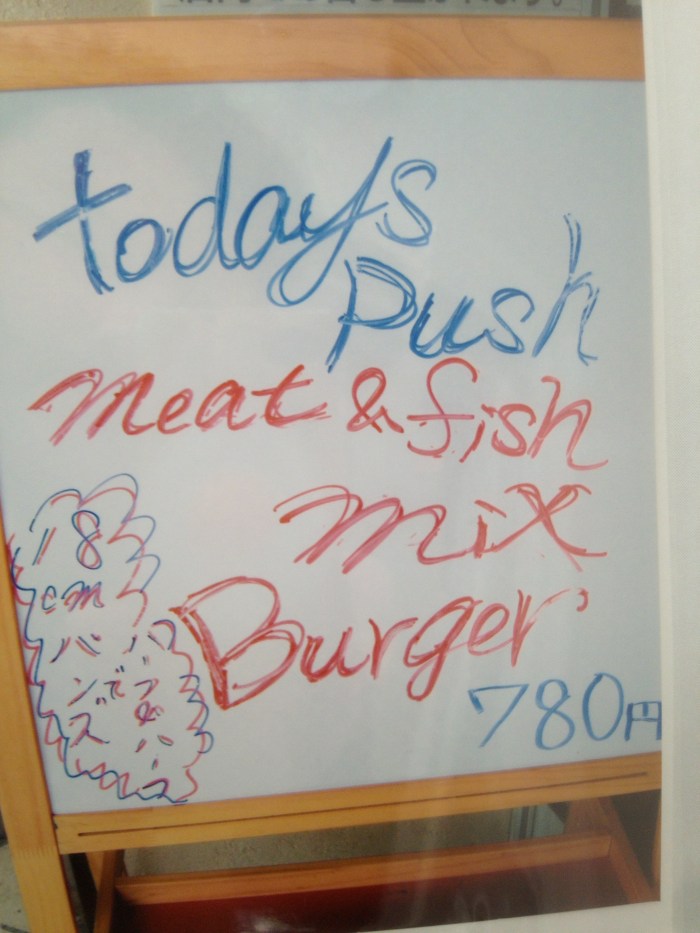 todays
push
meat & fish
mix
Burger
780円
18
cm
バンズで
ハーフ&ハーフ